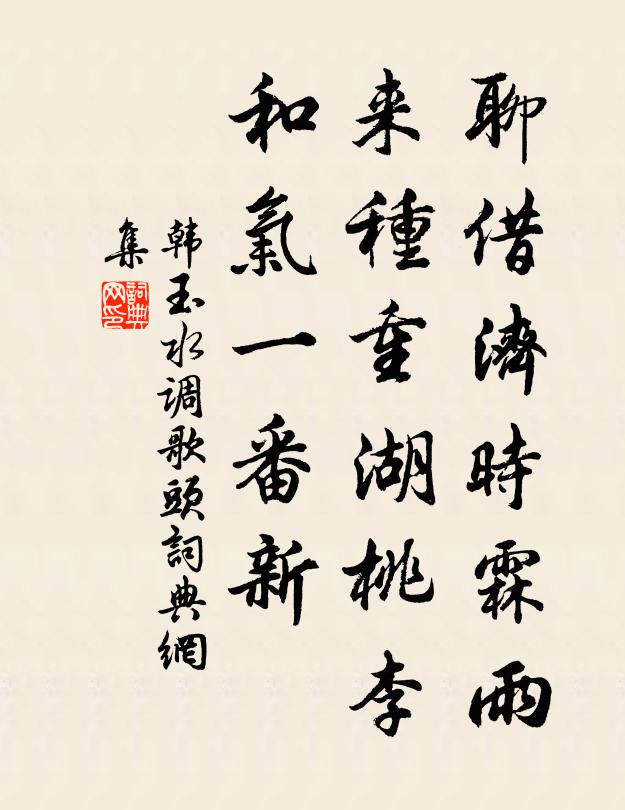 聊借濟時霖雨
来種重湖桃李
和氣一番新
韩玉水调歌頭詞典網
集
詞典
网印